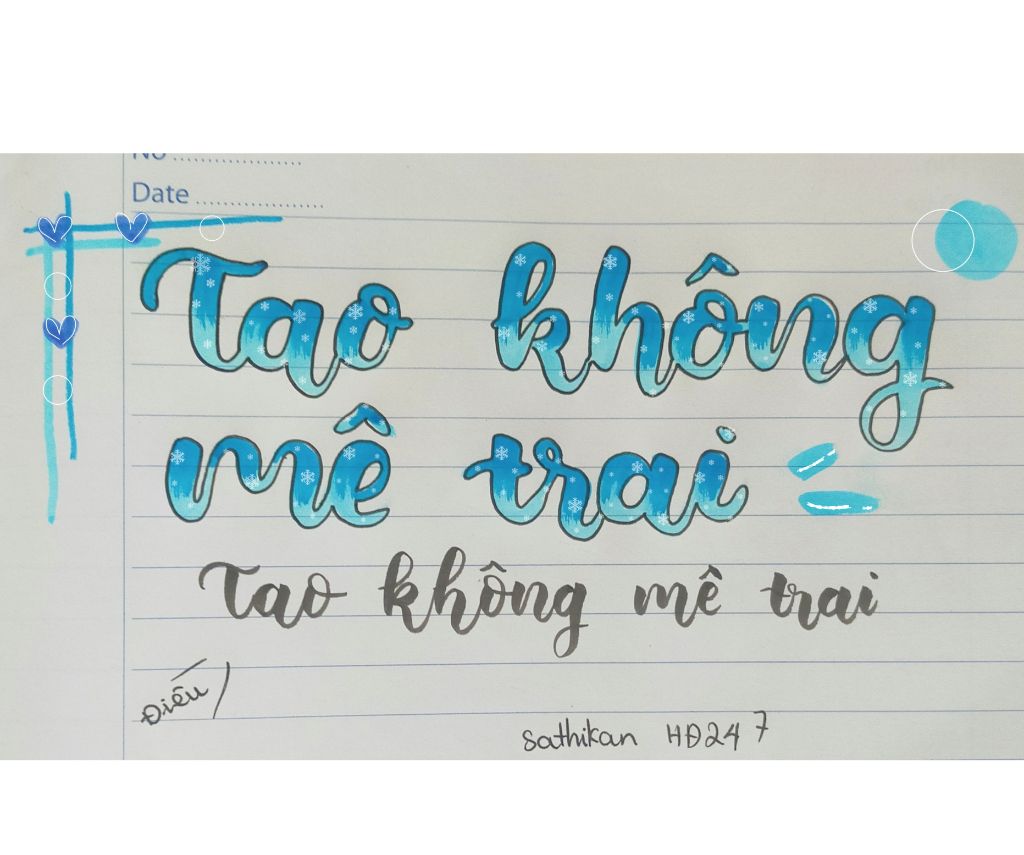 No ....................
Date ....................
Tao không
mê trai
Tao không mê trai
Điếu
Sathikan HĐ247